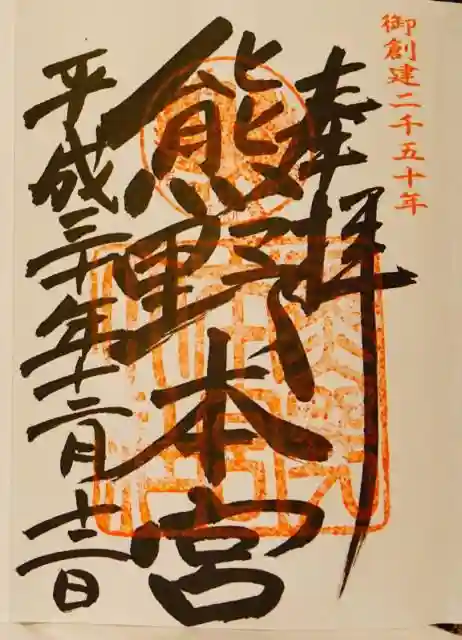 御創建二千五十年
奉拝
熊野本宮
平成三十年十二月十三日